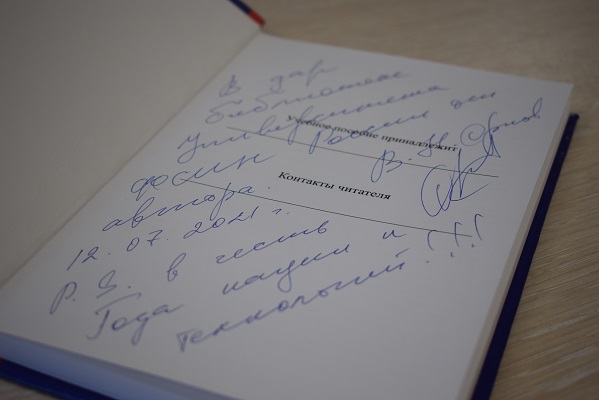 В дар
библиотеке
Университета
Учебное пособие принадлежит
ФСИН России
Контакты читателя
автора.
12.07.2021 г.
P. S. в честь
Года науки и
технологий!!!